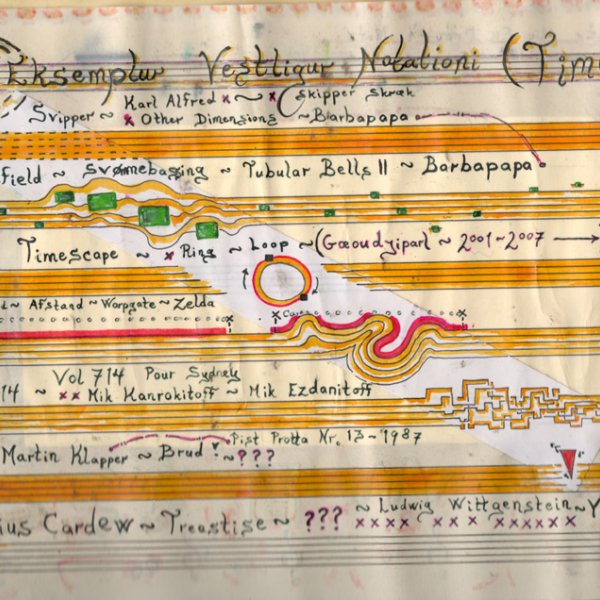 Eksemplur Vestligur Notationi (Time
Karl Alfred x ~ x Skipper Skræk
Svipper ~ x Other Dimensions ~ Barbapapa
field ~ Svømebassing ~ Tubular Bells II ~ Barbapapa
Timescape ~ x Ring ~ Loop ~ (Goeoudjiparl ~ 2001~2007 →
~ Afstand ~ Warpgate ~ Zelda
x x Cave x
Vol 714 Pour Sydney
14 ~ xx Mik Kanrokitoff ~ Mik Ezdanitoff
Pist Protta Nr. 13 ~ 1987
Martin Klapper ~ Brud ? ~ ???
~ Ludwig Wittgenstein ~ Y
ius Cardew ~ Treastise ~ ??? xxxx xxx xxxxxx